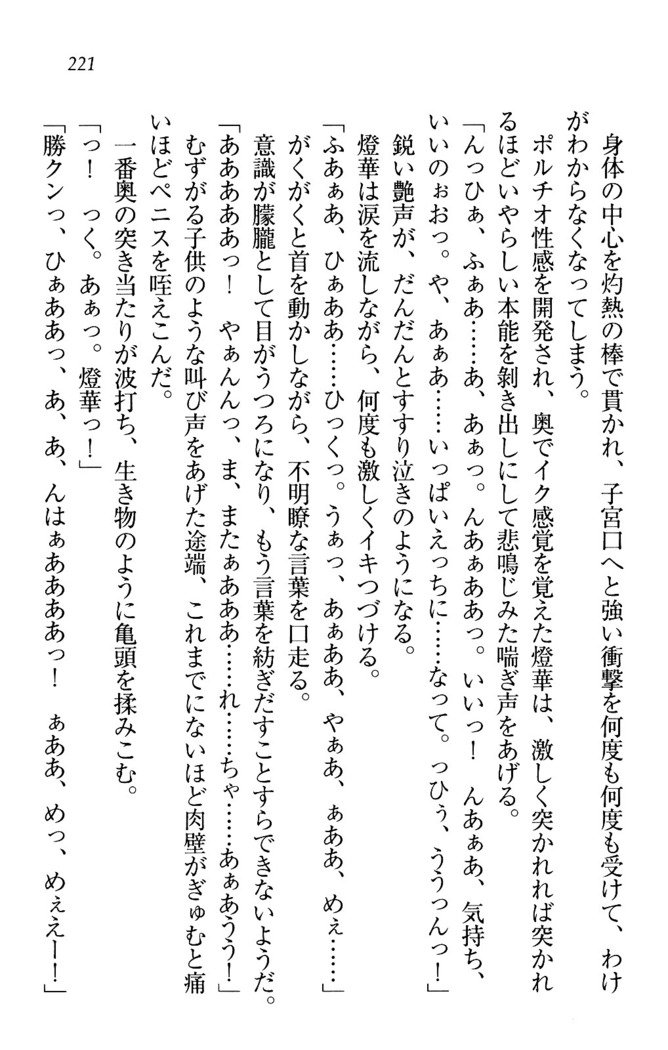 221
身体の中心を灼熱の棒で貫かれ、子宮口へと強い衝撃を何度も何度も受けて、わけ
がわからなくなってしまう。
ポルチオ性感を開発され、奥でイク感覚を覚えた燈華は、激しく突かれれば突かれ
るほどいやらしい本能を剥き出しにして悲鳴じみた喘ぎ声をあげる。
「んっひぁ、ふぁあ……あ、あぁっ。んあぁああっ。いいっ！　んあぁあ、気持ち、
いいのぉおっ。や、あぁあ……いっぱいえっちに……なって。っひぅ、ううっんっ！」
鋭い艶声が、だんだんとすすり泣きのようになる。
燈華は涙を流しながら、何度も激しくイキつづける。
「ふあぁあ、ひぁああ……ひっくっ。うぁっ、あぁああ、やぁあ、ぁああ、めぇ……」
がくがくと首を動かしながら、不明瞭な言葉を口走る。
意識が朦朧として目がうつろになり、もう言葉を紡ぎだすことすらできないようだ。
「あああああっ！　やぁんんっ、ま、またぁあああ……れ……ちゃ……あぁあうう！」
むずがる子供のような叫び声をあげた途端、これまでにないほど肉壁がぎゅむと痛
いほどペニスを咥えこんだ。
一番奥の突き当たりが波打ち、生き物のように亀頭を揉みこむ。
「っ！　っく。あぁっ。燈華っ！」
「勝クンっ、ひぁああっ、あ、あ、んはぁあああああっ！　ぁああ、めっ、めぇえー！」